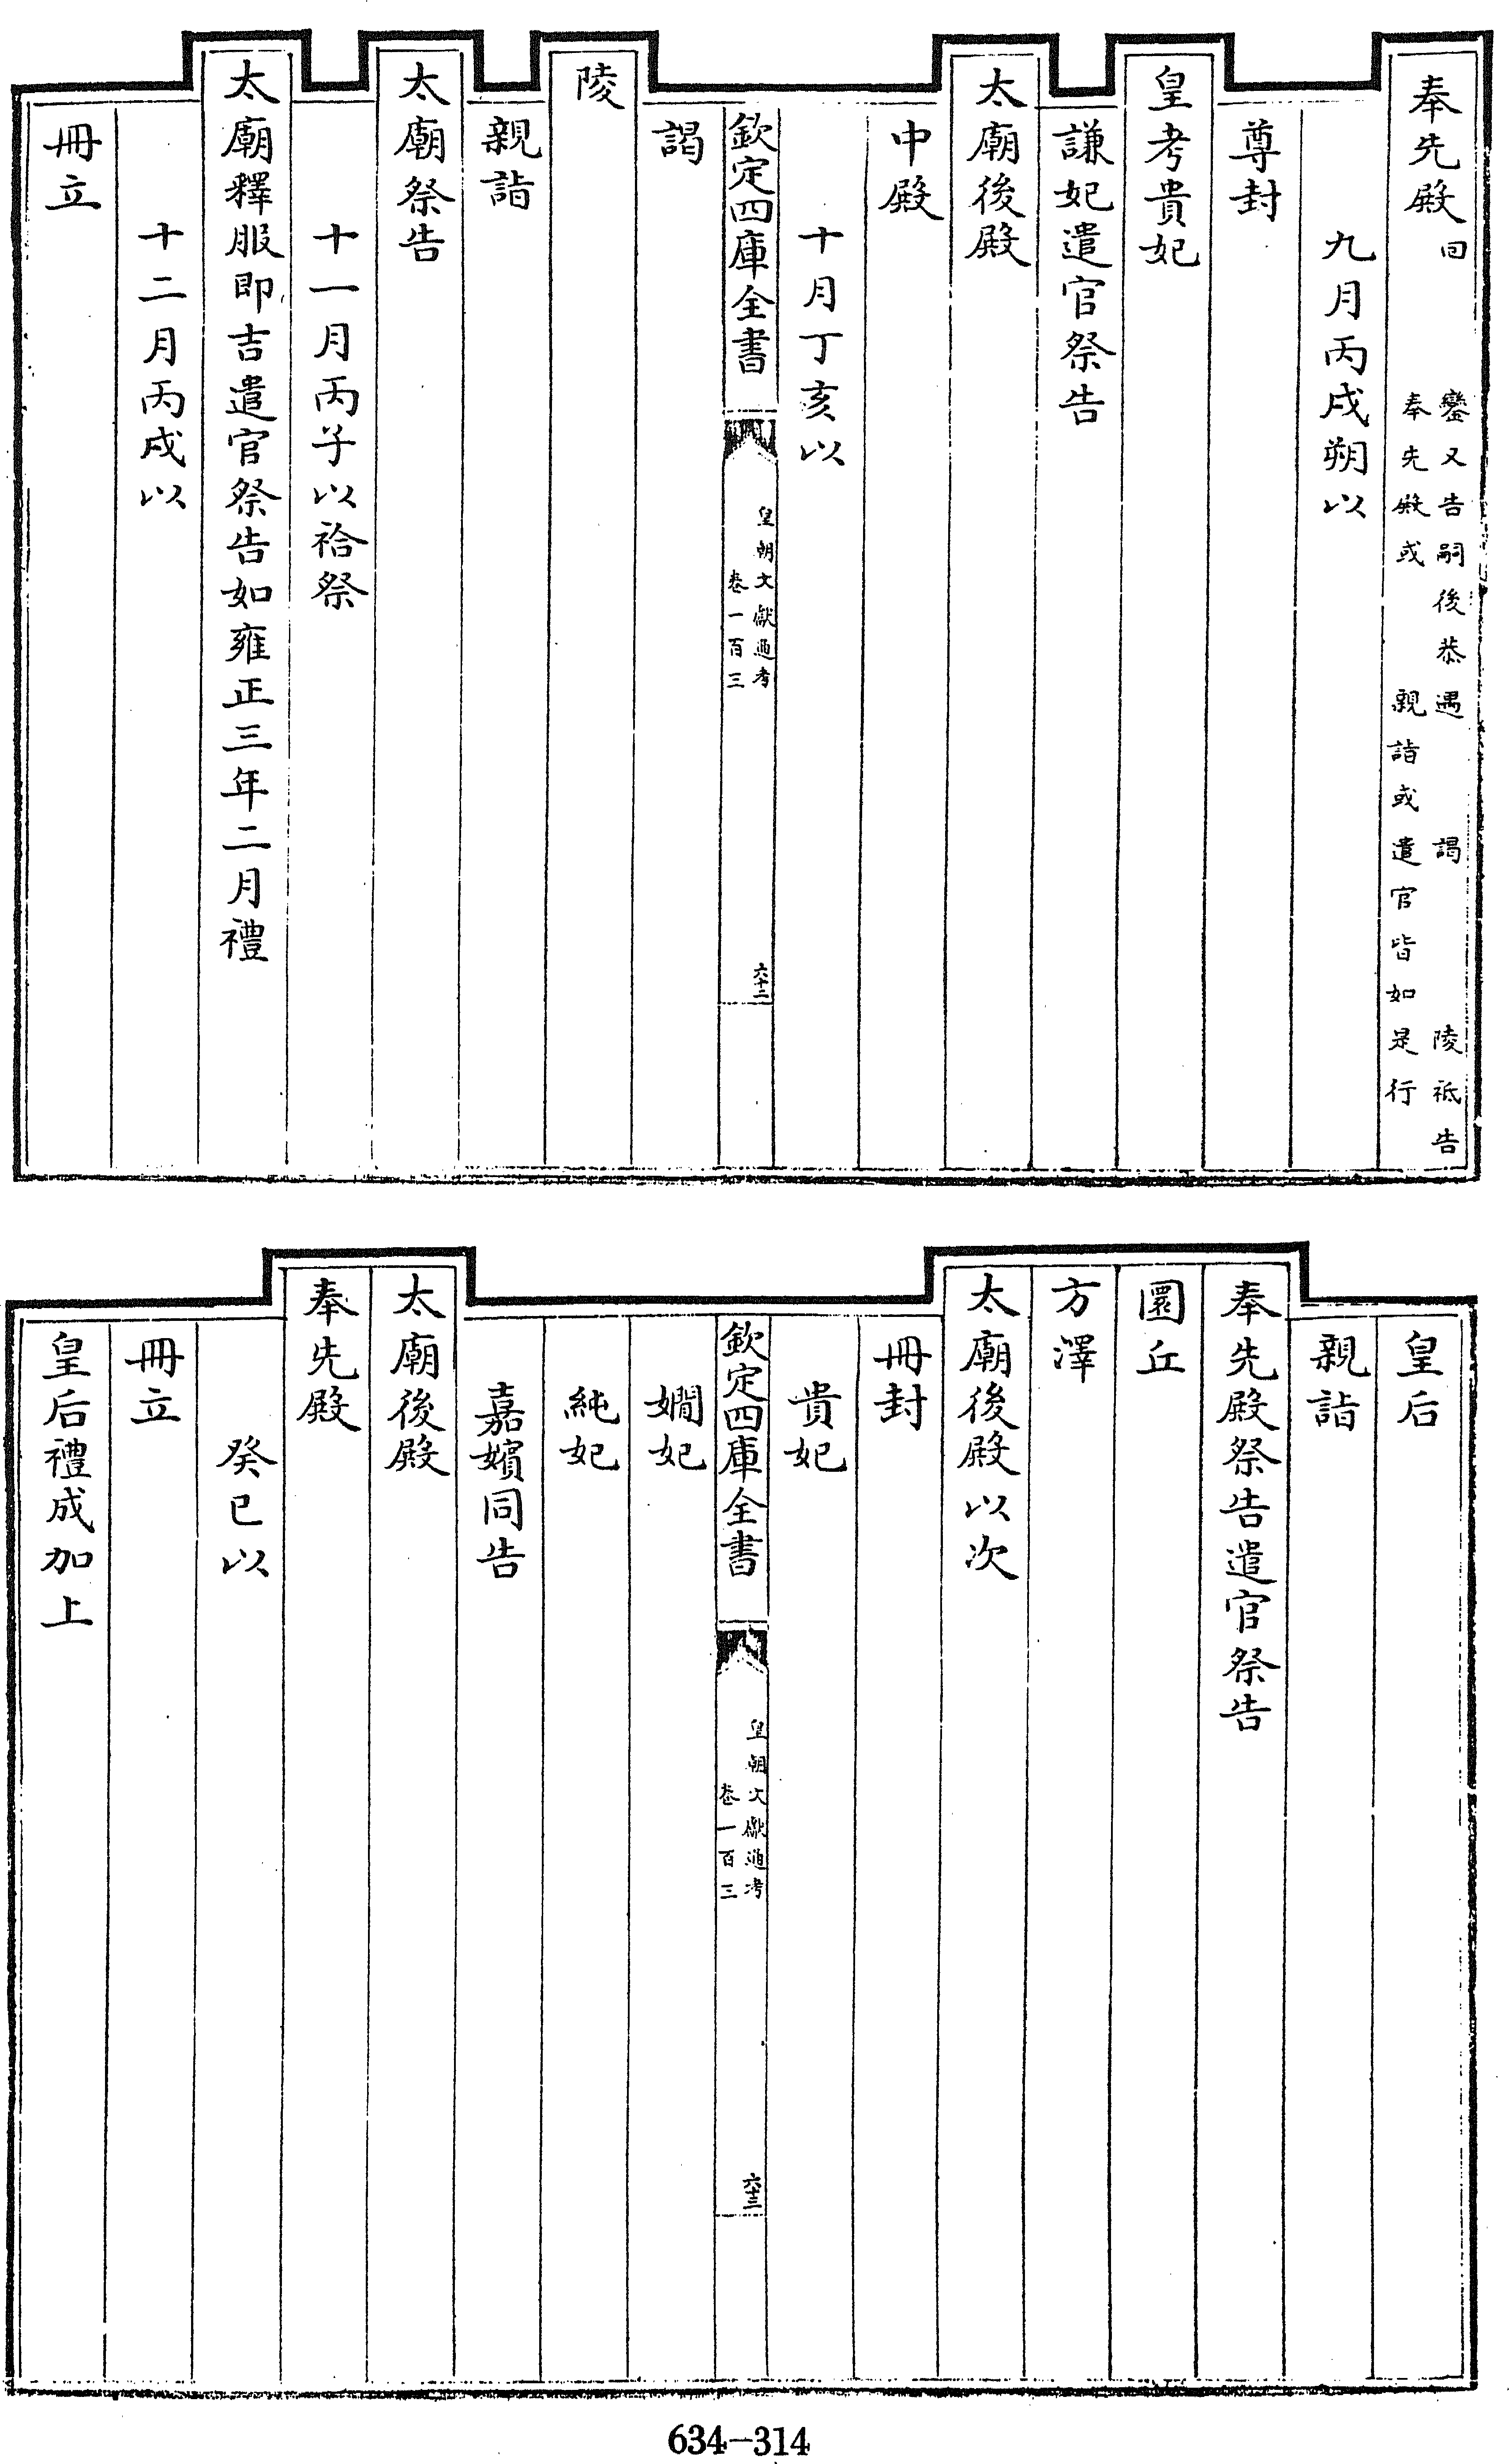 奉先殿回 鑾又告嗣後恭遇 謁 陵祗告
奉先殿或 親詣或遣官皆如是行
九月丙戌朔以
尊封
皇考貴妃
謙妃遣官祭告
太廟後殿
中殿
十月丁亥以
欽定四庫全書
皇朝文獻通考
卷一百三
六十二
謁
陵
親詣
太廟祭告
十一月丙子以祫祭
太廟釋服即吉遣官祭告如雍正三年二月禮
十二月丙戌以
冊立
皇后
親詣
奉先殿祭告遣官祭告
圜丘
方澤
太廟後殿以次
冊封
貴妃
欽定四庫全書
皇朝文獻通考
卷一百三
六十三
嫺妃
純妃
嘉嬪同告
太廟後殿
奉先殿
癸巳以
冊立
皇后禮成加上
634-314